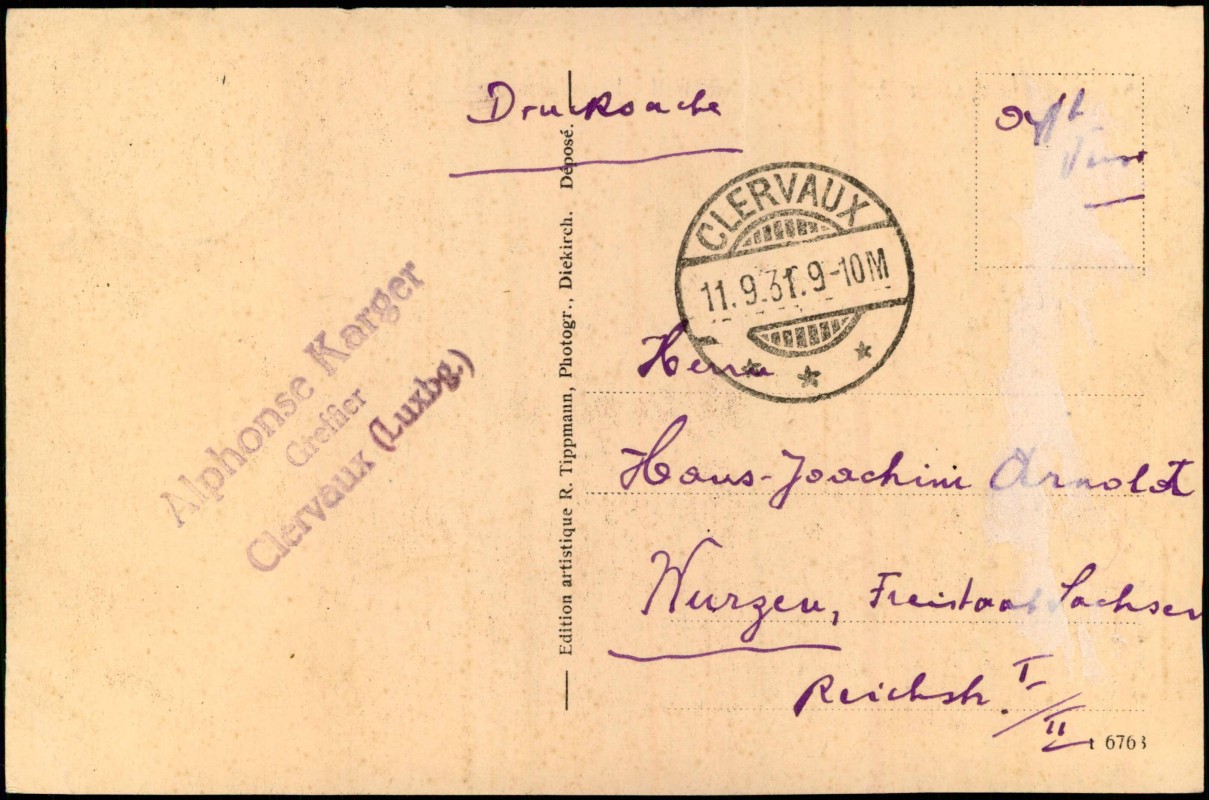 Drucksache
CLERVAUX
11.9.31. 9-10M
Alphonse Karger
Greffier
Clervaux (Luxbg.)
Edition artistique R. Tippmann, Photogr., Diekirch. Déposé.
Herrn
Hans-Joachim Arnoldt
Wurzen, Freistaat Sachsen
Reichstr. I/II
6763